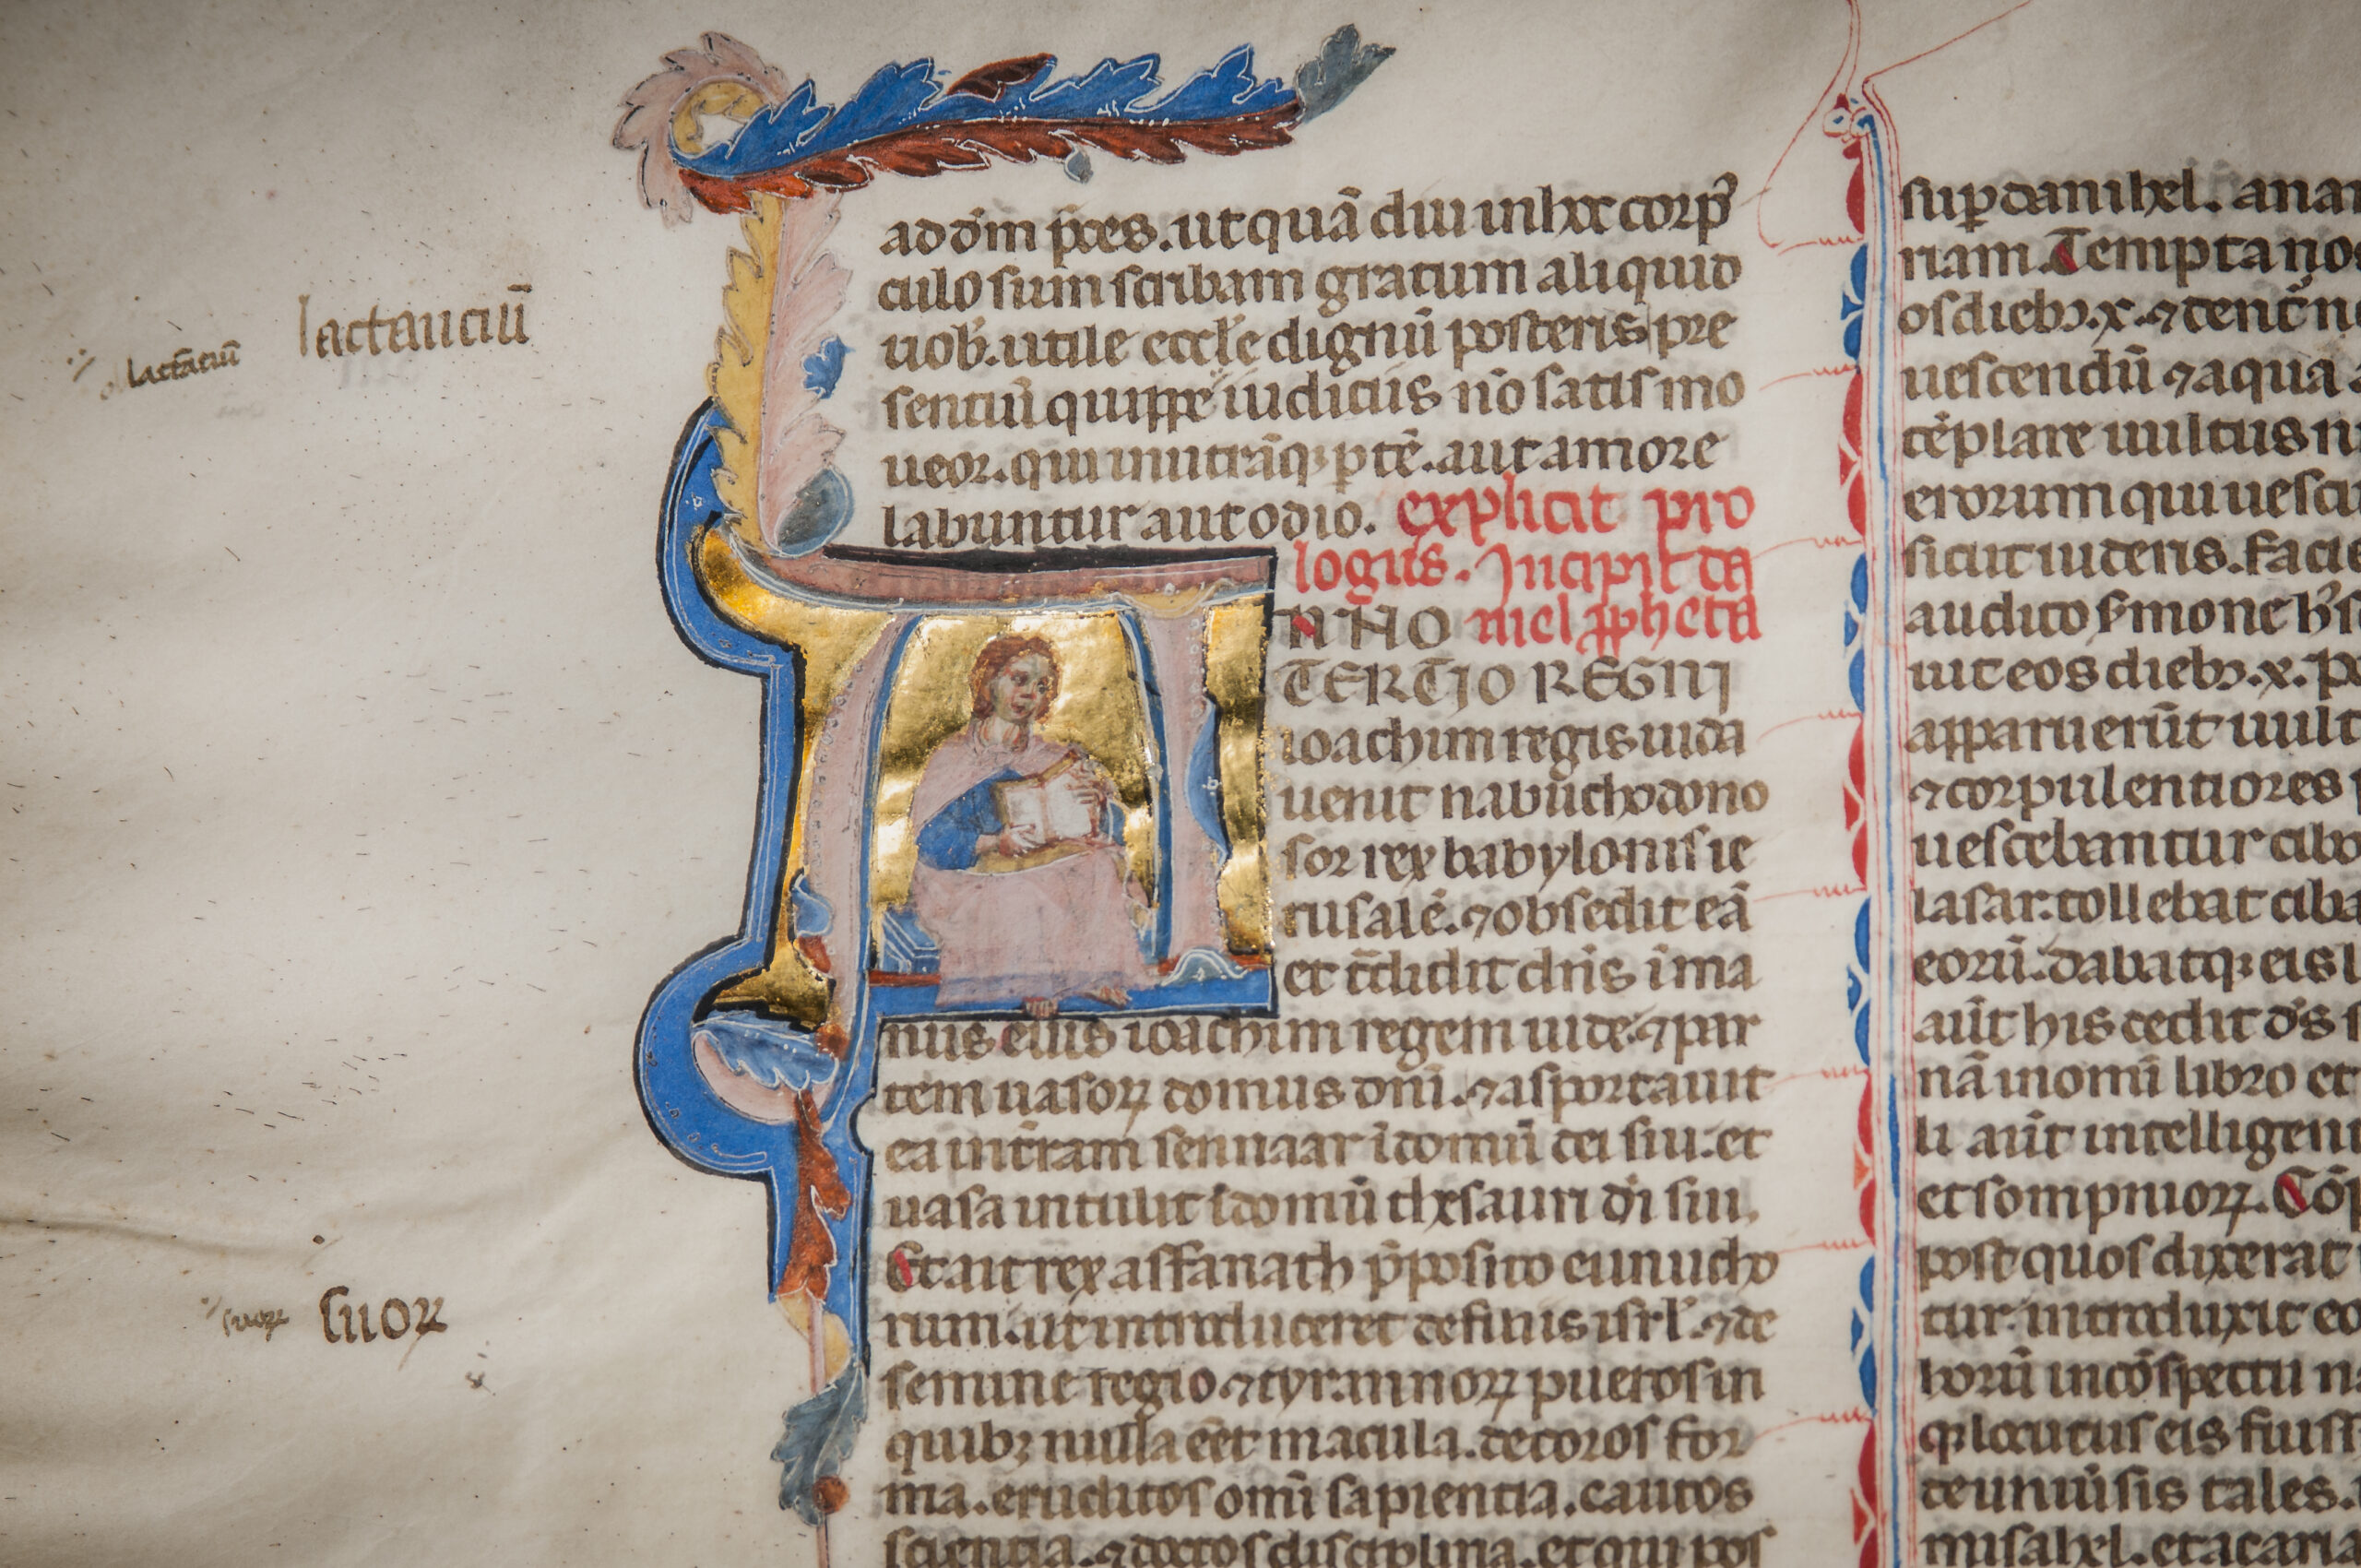 lactanciū
lactāciū
ad dm̄ p̄ces. ut quā diu in hoc corp
culo sum scribam gratum aliquid
uob. utile eccl'e dignū posteris pre
sentiū quippe iudiciis no satis mo
ueor. qui in utrāqȝ ptē. aut amore
labuntur aut odio. explicit pro
logus. Incipit da
NNO niel ppheta
TERTIO REGNI
ioachim regis iuda
uenit nabuchodono
sor rex babylonis ie
rusalē. ⁊ obsedit eā
et t̄didit dn̄s ī ma
nus eius ioachim regem iude. ⁊ par
tem uasoꝝ domus dn̄i. ⁊ asportauit
ea in t̄ram sennaar ī domū dei sui. et
uasa intulit ī domū thesauri di sui.
Et ait rex asfanath p̄posito eunucho
rum. ut introduceret de filiis isrl'. ⁊ de
semine regio ⁊ tyrannoꝝ pueros in
quibȝ nulla eēt macula. decoros for
ma. eruditos omī sapientia. cautos
scientia. ⁊ doctos disciplina. et qui pos
suoꝝ
suoꝝ
suꝑ danihel. anan
riam. Tempta nos
os diebȝ. x. ⁊ dent̄ no
uescendū ⁊ aqua a
tēplare uultus n
erorum qui uescu
sicut uideris. facie
audito ẜmone h's
uit eos diebȝ. x. po
apparuerūt uult
⁊ corpulentiores
uescebantur cibo
lasar. tollebat ciba
eorū. dabatqȝ eis l
aūt his dedit ds
nā in omī libro et
li aūt intelligent
et sompnioꝝ. Cōp
post quos dixerat
tur. introduxit eo
horū in cōspectu n
locutus eis fuiss
de uniūsis tales.
misahel. et acaria